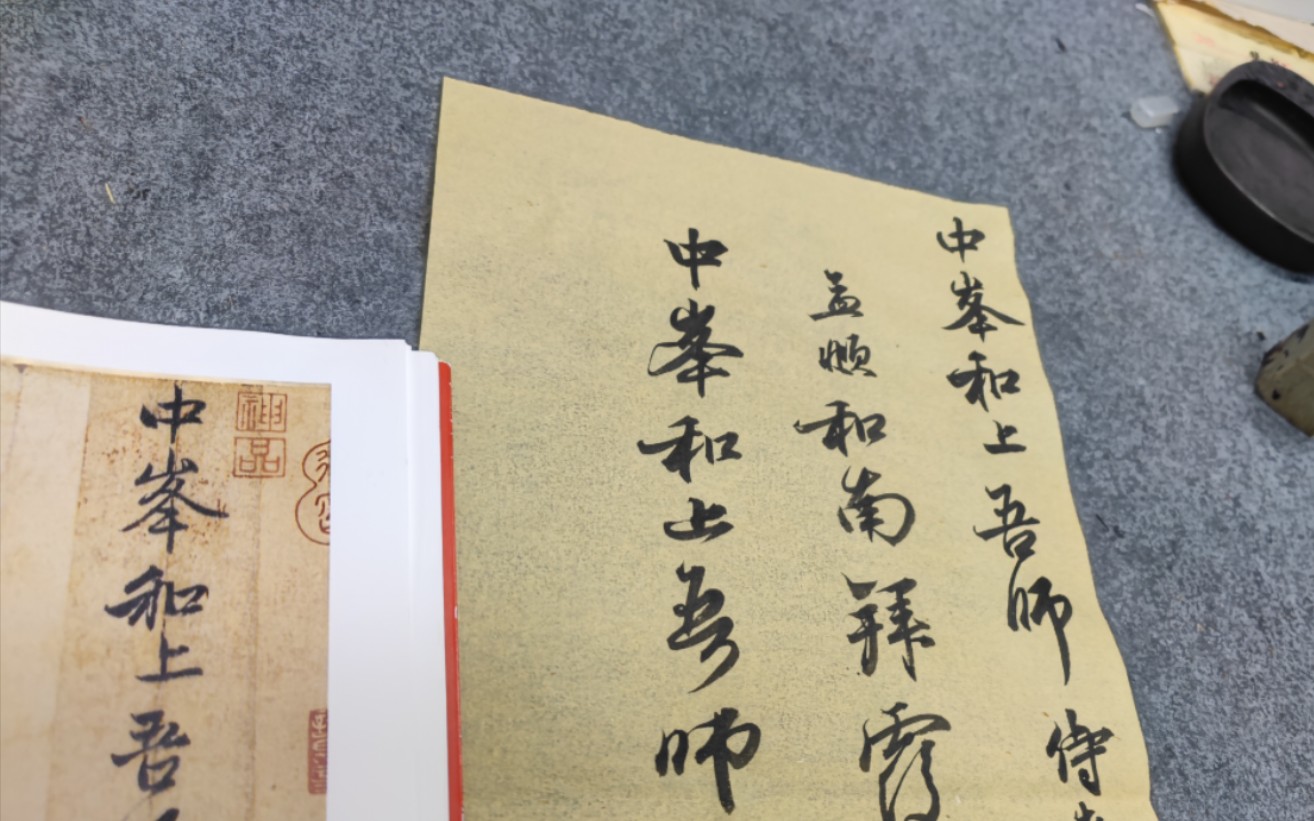 中峯和上吾師 侍
孟頫和南拜覆
中峯和上吾師
神品
中峯和上吾